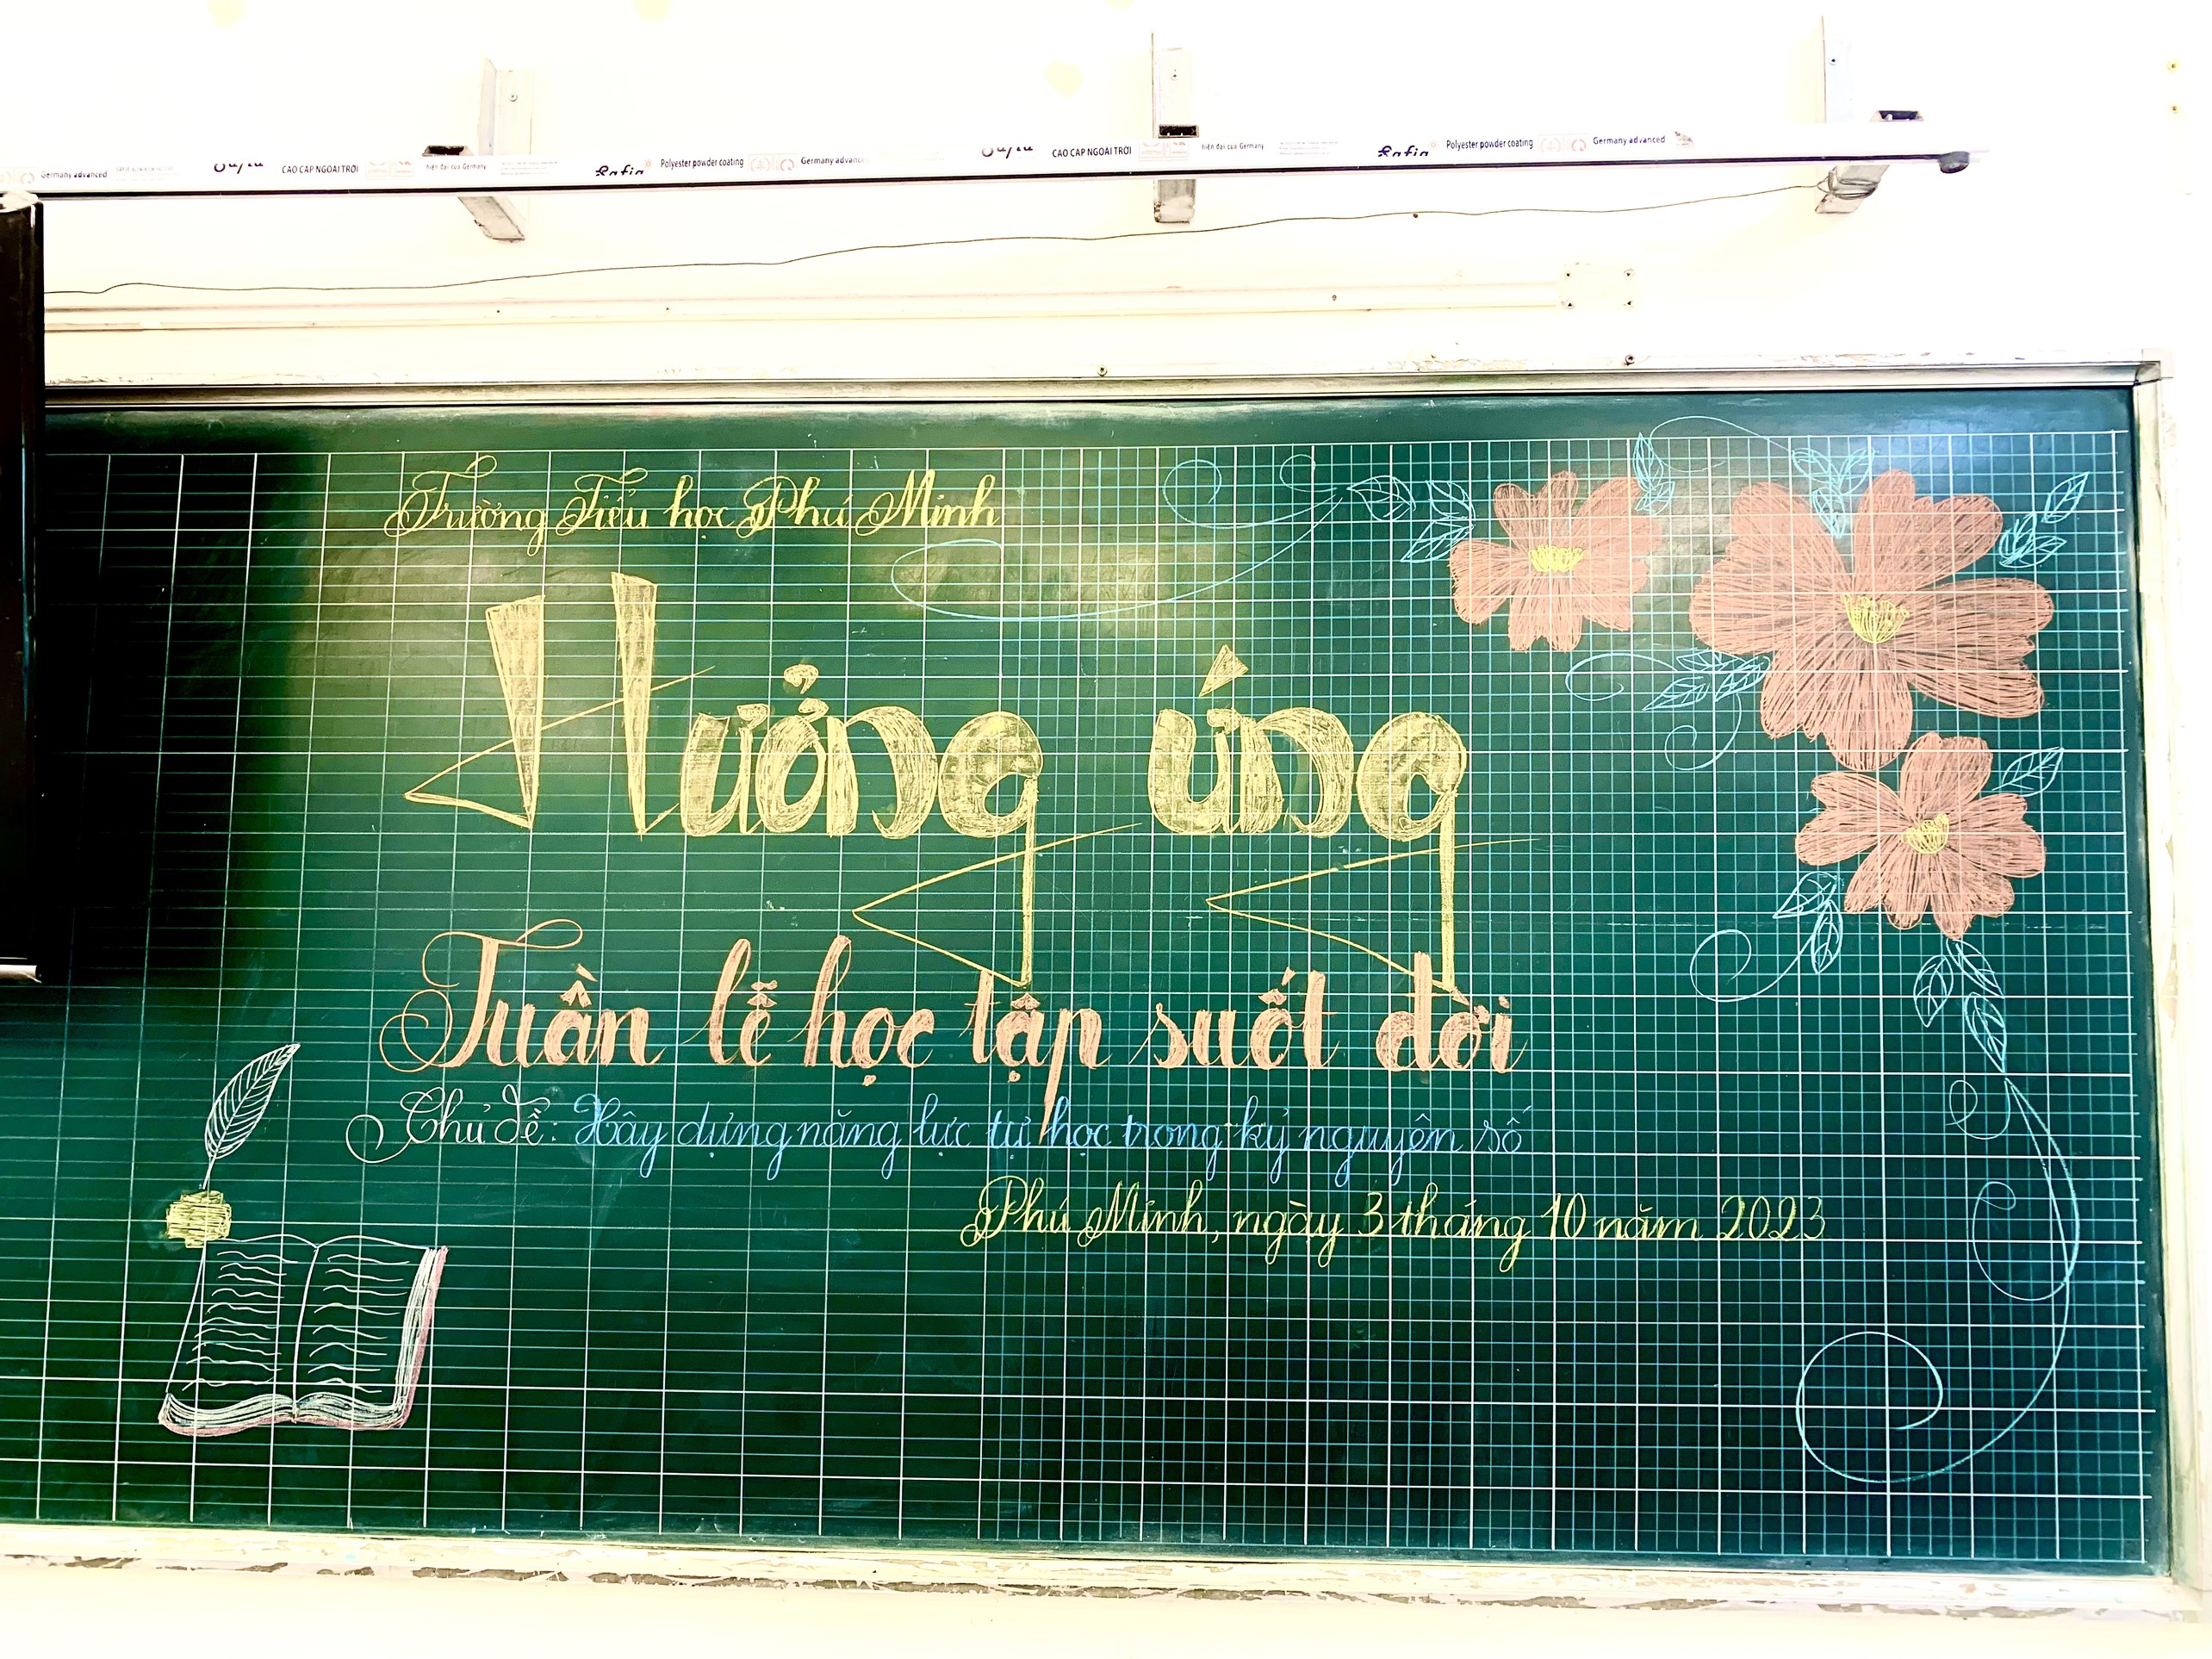 Germany advanced CAO CẤP NGOÀI TRỜI hiện đại của Germany Polyester powder coating Germany advanced CAO CẤP NGOÀI TRỜI hiện đại của Germany Polyester powder coating Germany advanced
Trường Tiểu học Phú Minh
Hưởng ứng
Tuần lễ học tập suốt đời
Chủ đề: Xây dựng năng lực tự học trong kỷ nguyên số
Phú Minh, ngày 3 tháng 10 năm 2023